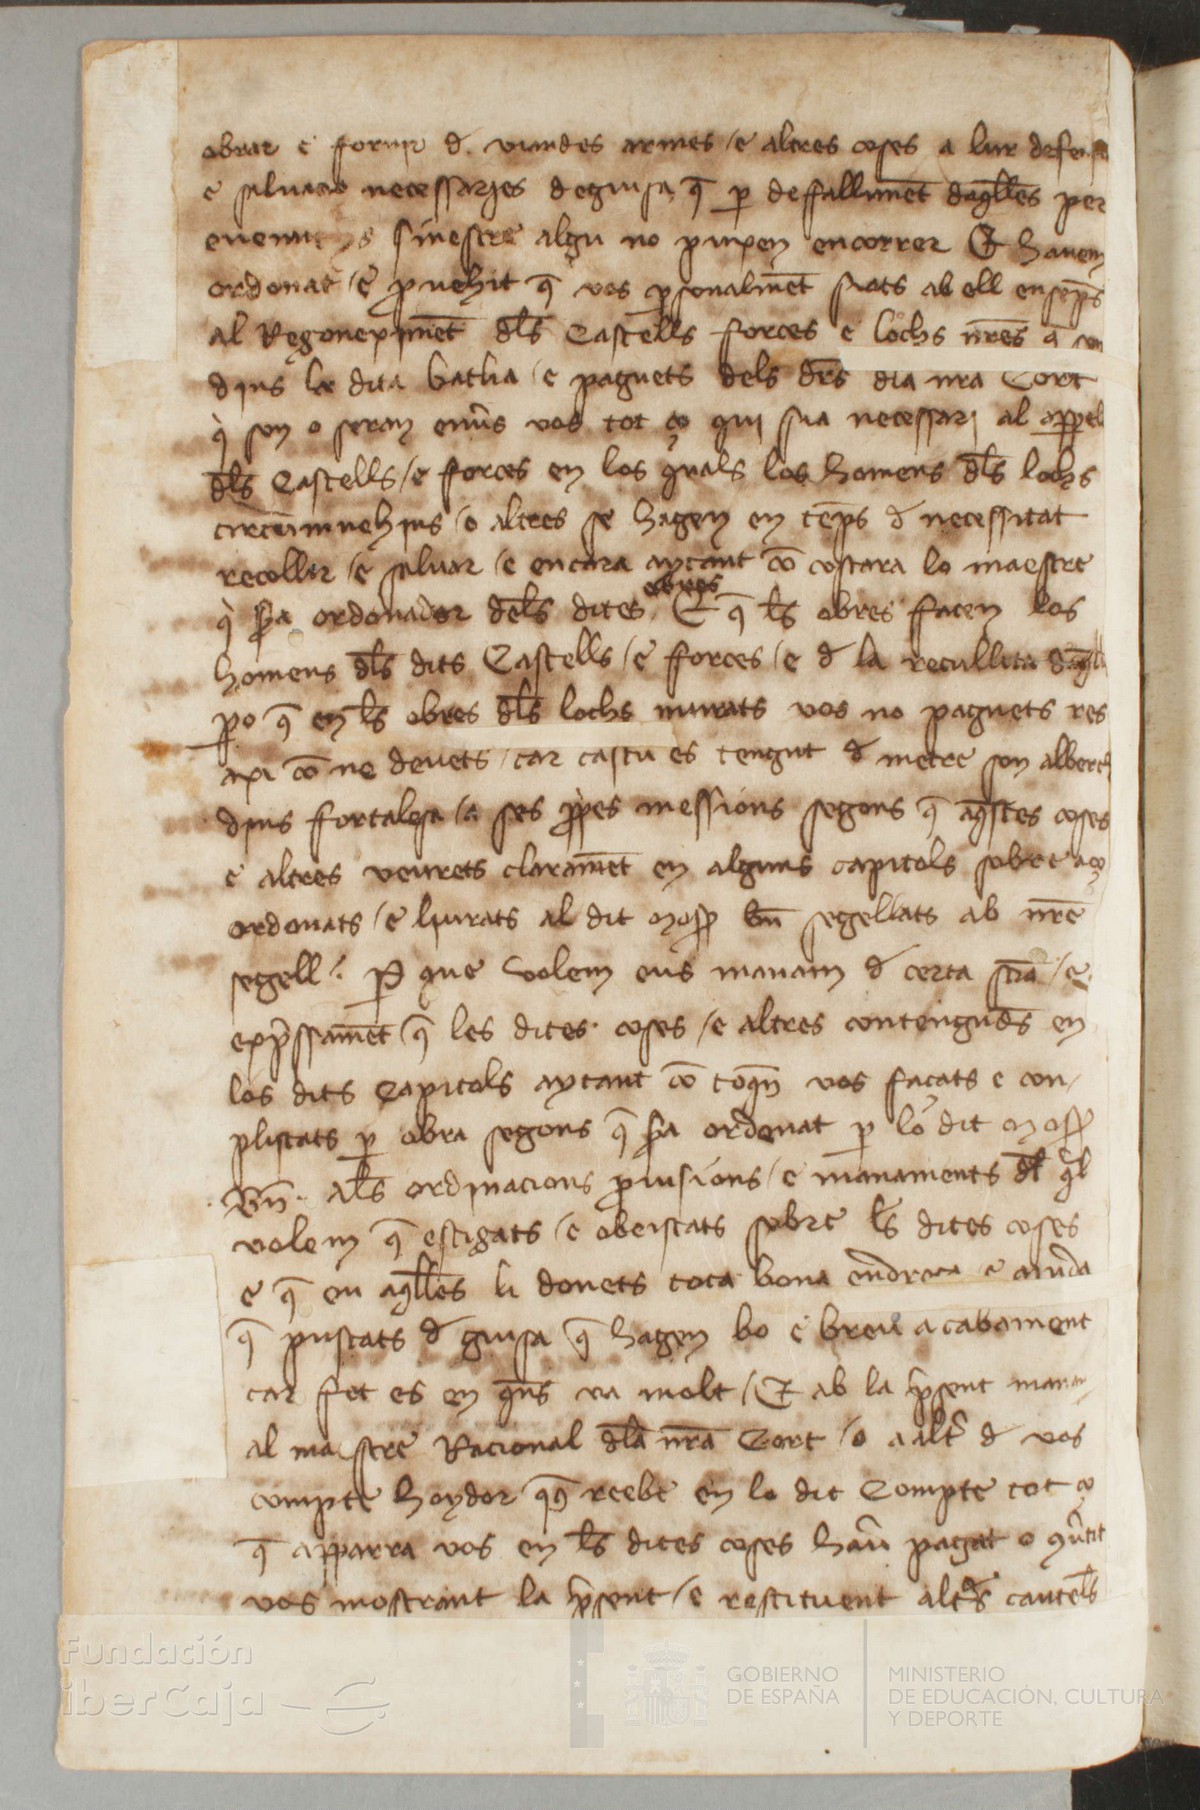 obrar e fornir d viandes armes / e altres coses a lur
e saluacio necessaries deguisa q̄ p deffallimēt daq̄lles per
sinestre algu no puxen encorrer Et hauem
ordonat / e ꝓuehit q̄ vos ꝑsonalmēt siats ab ell ensēps
al Regonexemēt dl̄s Castells forces e lochs nr̄es
dins la dita batlia / e paguets dels drs̄ dla nra Cort
q̇ son o seran enūs vos tot ço qui sia necessari al appel
dl̄s Castells / e forces en los quals los homens dl̄s lochs
circumuehins / o altres se hagen en tēps d necessitat
recollir / e saluar / e encara aytant cō costara lo maestre
q̇ sꝑa ordonador del̄s dites obres Et q̄ l̄s obres facen los
homens dl̄s dits Castells / e forces / e d la recullita
ꝑo q̄ en l̄s obres dl̄s lochs murats vos no paguets res
axi cō ne deuets / car cascu es tengut d metre son alberch
dins fortalesa / a ses ꝓp̄es messions segons q̄ aq̄stes coses
e altres veurets claramēt en alguns capitols sobre aço
ordonats / e liurats al dit mossꝑ bn̄ segellats ab nr̄e
segell . P que volem eus manam d certa scīa / e
exp̄ssamēt q̄ les dites coses / e altres contengudes en
los dits Capitols aytant cō toq̄n vos façats e con
pliscats p obra segons q̄ sꝑa ordenat p lo dit mossꝑ
bn̄ . Al̄s ordinacions ꝓuisions / e manaments dl̄ q̄l
volem q̄ estigats / e obeiscats sobre l̄s dites coses
e q̄ en aq̄lles li donets tota bona endreça e aiuda
q̄ puscats d guisa q̄ hagen bo e breu acabament
car fet es en q̄ns va molt / Et ab la p̄sent manam
al maestre Racional dl̄a nr̄a Cort / o a altr̄ d vos
compte hoydor q̄us reebe en lo dit Compte tot ço
q̄ apparra vos en l̄s dites coses hau̅ pagat o
vos mostrant la p̄sent / e restituent altr̄s cautel̄s
Fundación
iberCaja
GOBIERNO
DE ESPAÑA
MINISTERIO
DE EDUCACIÓN, CULTURA
Y DEPORTE